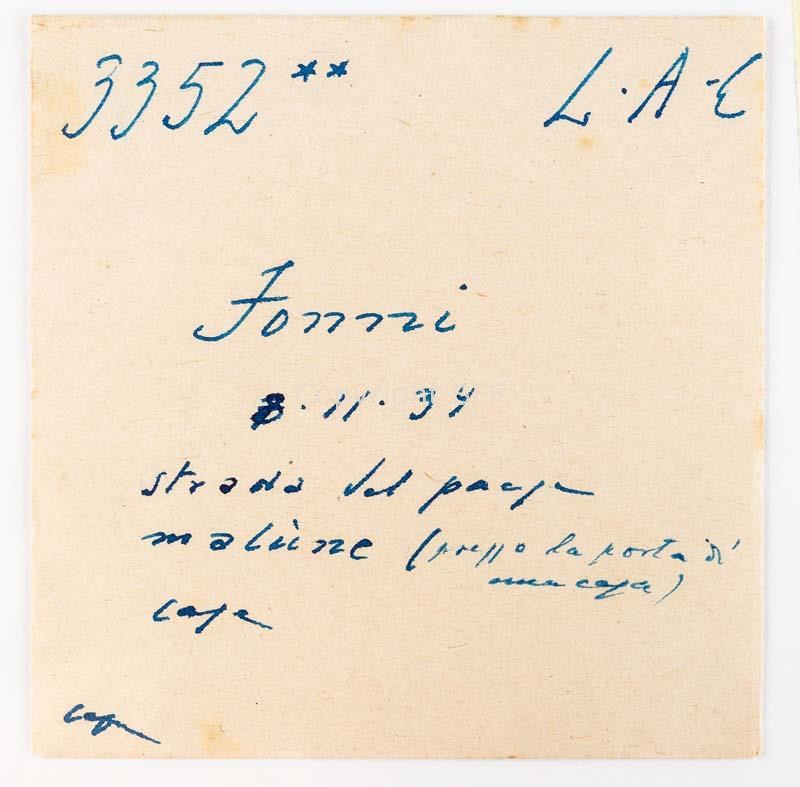 3352** L·A·E
Fonni
8·11·34
strada del paese
malùne (presso la porta di
una casa)
case
case